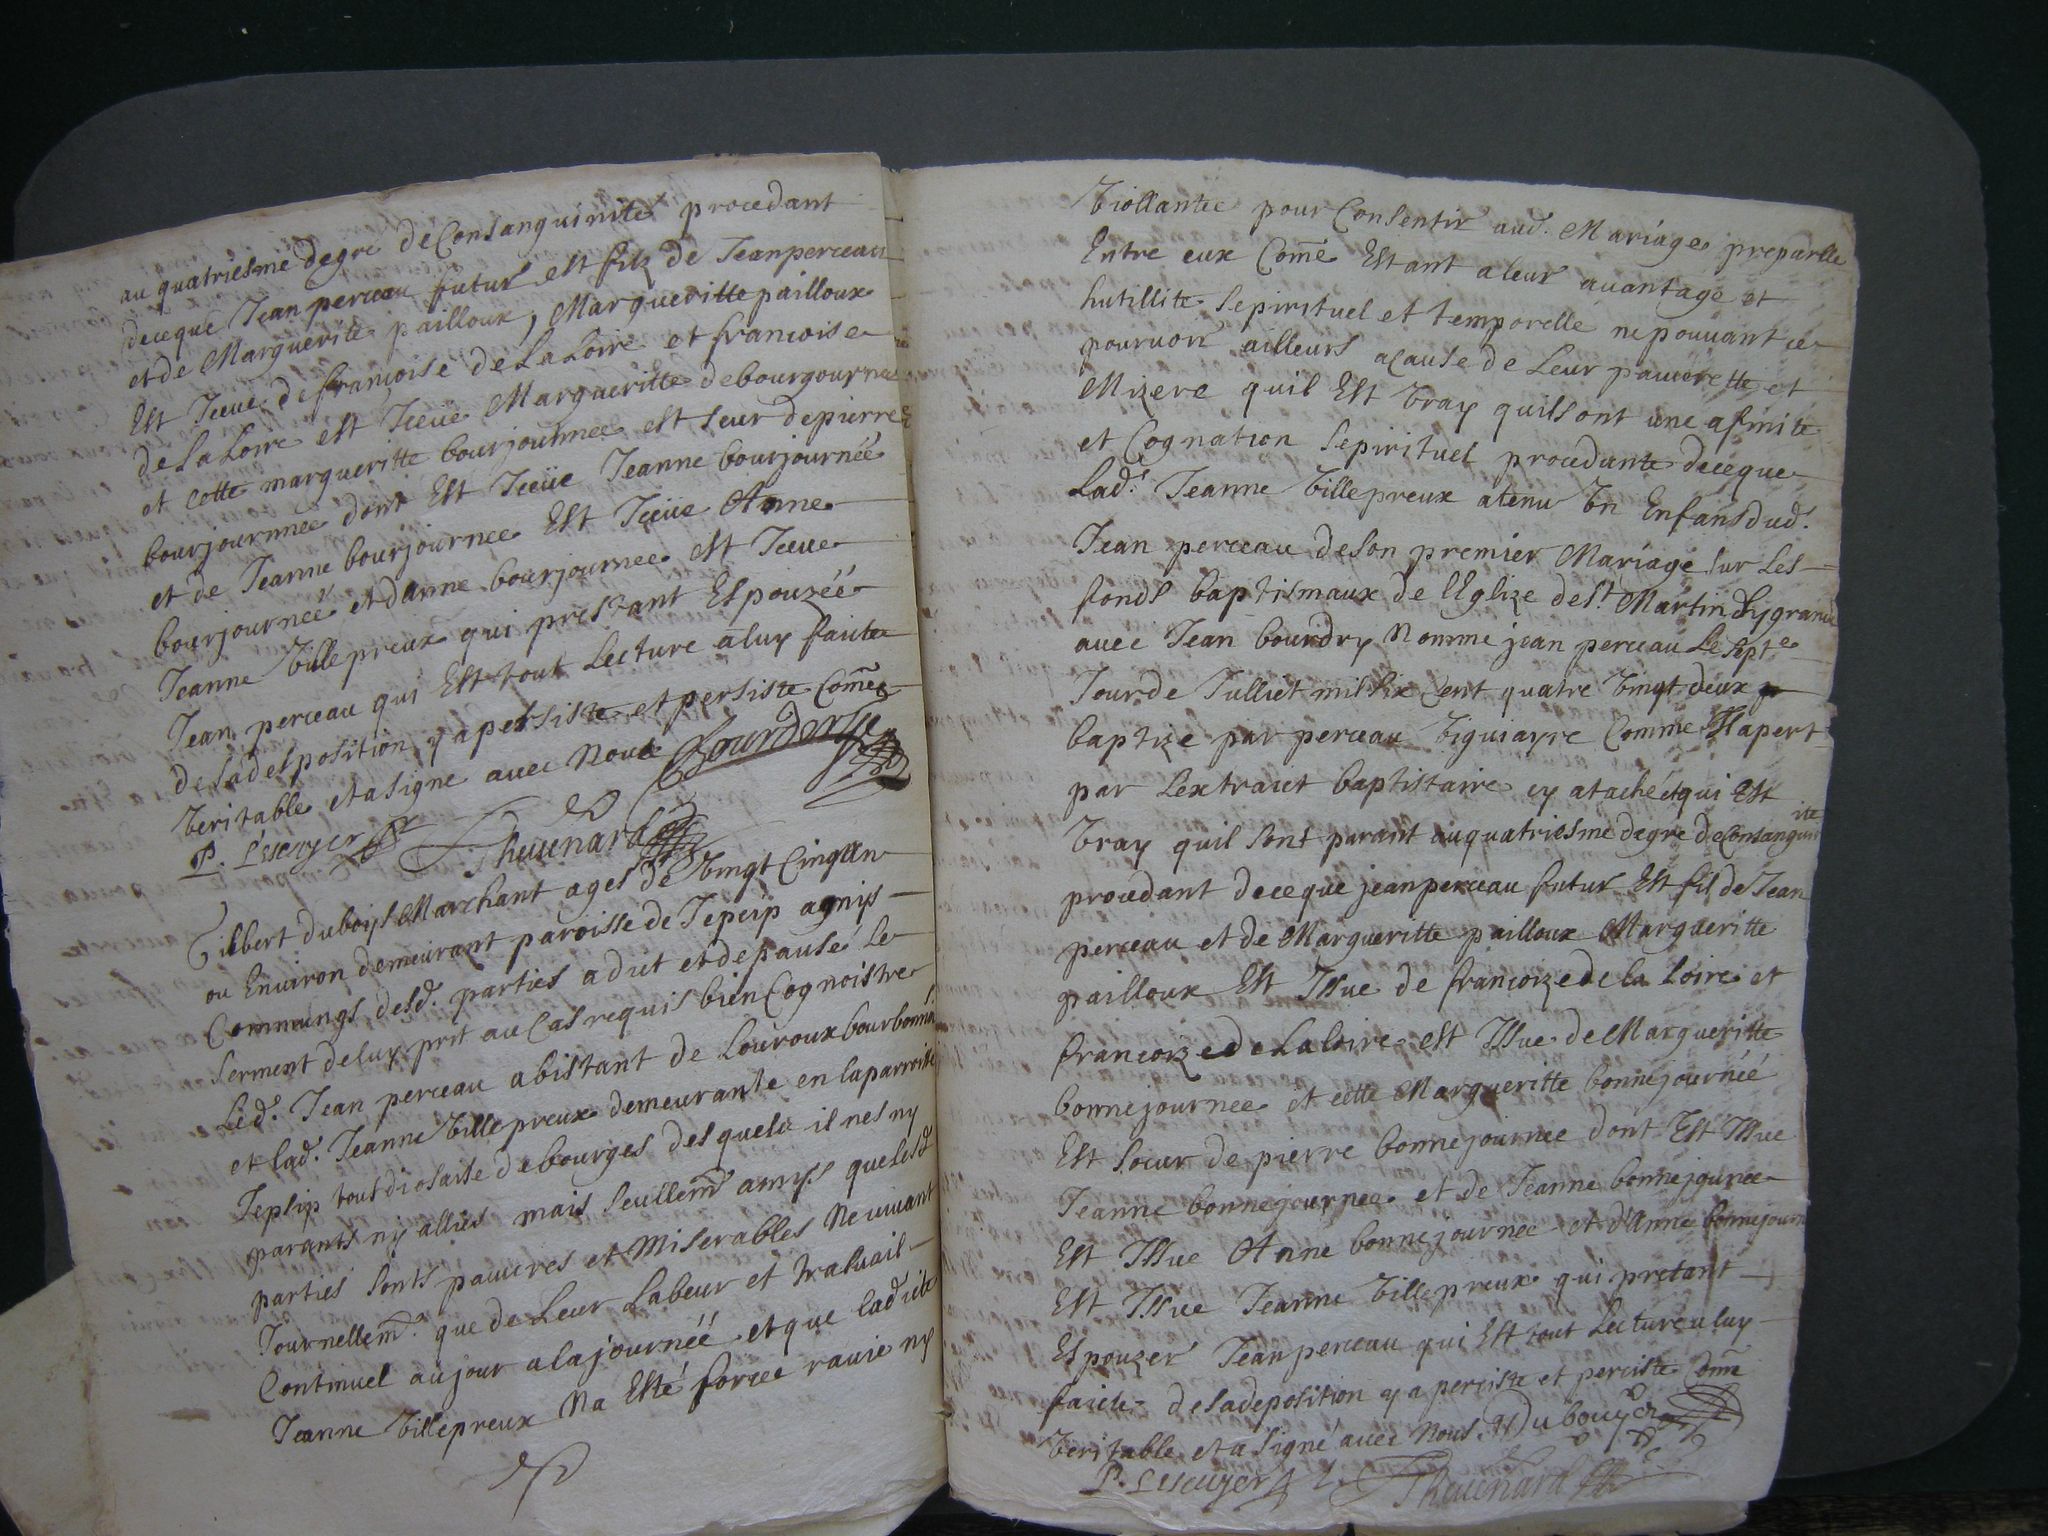 au quatriesme degre de Consanguinite procedant
deceque Jean perceau futur est filz de Jean perceau
et de Marguerite pailloux, Margueritte pailloux
Est Iceue de françoise de La Loire et francoise
de La Loire est Iceüe Margueritte de bourgournee
et cette margueritte bourjournnee est seur de pierre
bourjournnee dont Est Iceüe Jeanne bourjournéé
et de Jeanne bourjournee Est Iceüe Anne
bourjournéé et danne bourjournee est Iceue
Jeanne Villepreux qui prestant Espouzéé
Jean perceau qui Est tout Lecture a luy faite
de sa desposition y a persiste et persiste Come
Veritable et a signe avec Nous
P. Lescuyer Theuenard
Gilbert duboys Marchant ages de Vingt Cinq an
ou Environ demeurant paroisse de Tepcip agnis
Commungs desd. parties a dit et depause le
serment de luy prit au Cas requis bien Cognoistre
Led. Jean perceau abistant de Louroux bourbonnä
et lad. Jeanne Villepreux demeurante en la parroisse
Tepsip tout diosaise de bourges desquels il nes ny
parants ny allies mais seullemt amys que lesd
parties sont pauures et Miserables Ne uiuant
Journellemt. que de Leur Labeur et trauail
Continuel au jour a la journéé et que lad icte
Jeanne Villepreux Na Esté forcee rauie ny
Viollantee pour Consentir aud. Mariage preparlle
Entre eux Come Estant a leur auantage et
hutillite sepirituel et temporelle ne pouuant ce
pouruoir ailleurs a cause de Leur pauurette et
Mizere quil Est Vray quils ont une afinite
et Cognation sepirituel procedante deceque
Lad. Jeanne Villepreux a tenu Vn Enfans dud.
Jean perceau de son premier Mariage sur Les
fonds baptismaux de lEglize de St. Martin dygrande
avec Jean bourdry Nomme jean perceau Le septe
Jour de Julliet mil six Cent quatre Vingt deux
baptize par perceau Viguiayre Comme Il apert
par Lextraict baptistaire cy ataché et qui Est
Vray quil sont parant au quatriesme degre de Consanguinite
procedant de ce que jean perceau futur Est fil de Jean
perceau et de Margueritte pailloux Margueritte
pailloux Est Issue de francoize de la Loire et
francoize de La loire est Issue de Margueritte
bonnejournee et cette Margueritte bonnejournéé
Est soeur de pierre bonnejournee dont Est Issue
Jeanne bonnejournee et de Jeanne bonnejournee
Est Issue Anne bonnejournee et d'Anne bonnejourn
Est Issue Jeanne Villepreux qui pretant
Espouzer Jean perceau qui Est tout Lecture a luy
faicte de sa deposition y a perciste et perciste Come
Veritable et a signé avec Nous Dubouy
P. Lescuyer Theuenard